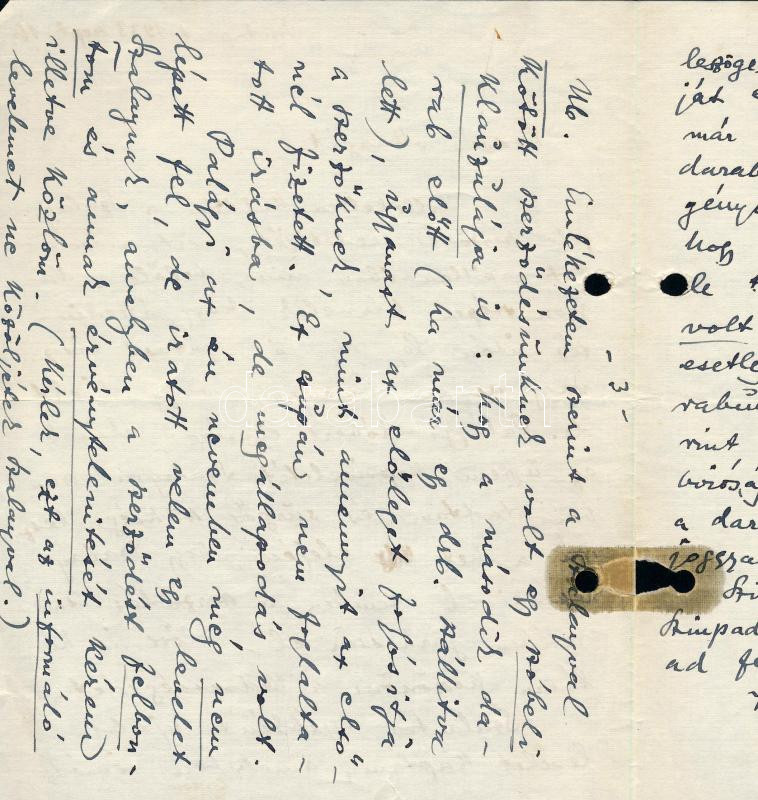 - 3 -
Ub. Emlékezetem szerint a Szalayval
kötött szerződésünknek volt egy szóbeli
klauzulája is: hogy a második da-
rab előtt (ha már egy drb. szállitva
lett), ugyanazt az előleget folyósitja
a szerzőknek, mint amennyit az első-
nél fizetett. Ez csupán nem foglalta-
tott irásba, de megállapodás volt.
Palágyi az én nevemben még nem
lépett fel, de iratott velem egy levelet
Szalaynak, amelyben a szerződést felbon-
tom és annak érvénytelenitését kérem)
illetve közlöm. (Kérlek, ezt az informáló
levelemet ne közöljétek Szalayval.)
leszöge
ját
már
darab
génye
hog
le
volt
esetleg
rabun
rint
biróság
a dar
jogsza
Szi
Szinpad
ad fe
darabanth